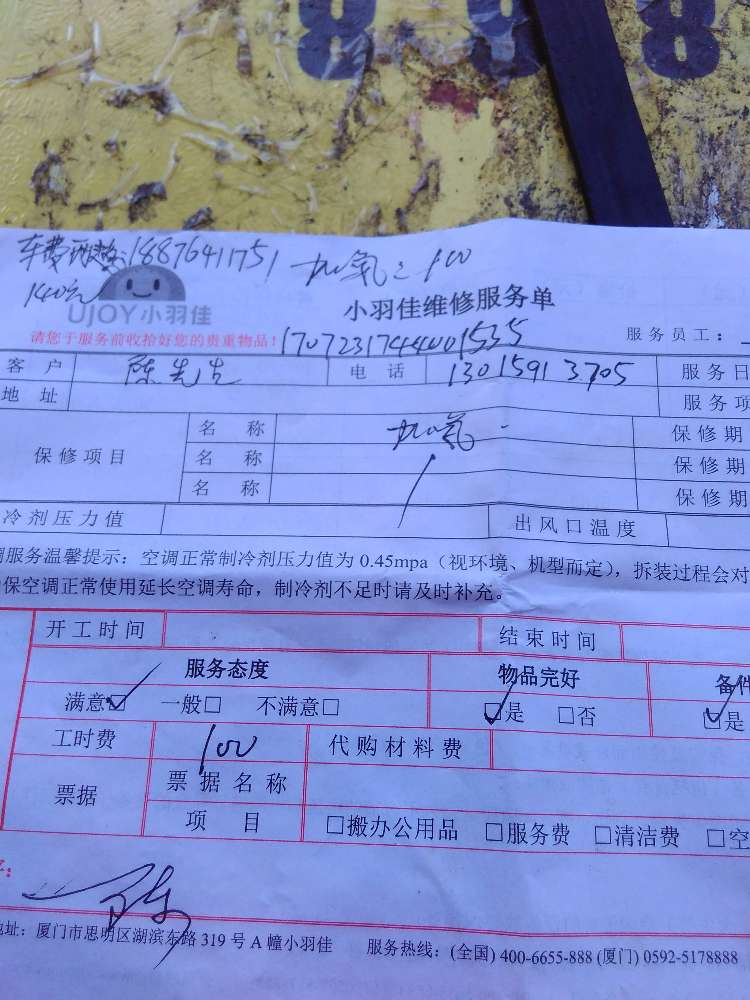 888
车费 18876411751 加氧:100
UJOY小羽佳 小羽佳维修服务单
请您于服务前收拾好您的贵重物品! 1707231744401535 服务员工:
客户 陈先生 电话 13015913705 服务日
地址 服务项
保修项目 名称 加氧 保修期
名称 保修期
名称 保修期
冷剂压力值 出风口温度
调服务温馨提示:空调正常制冷剂压力值为0.45mpa(视环境、机型而定),拆装过程会对
保空调正常使用延长空调寿命,制冷剂不足时请及时补充。
开工时间 结束时间
服务态度 物品完好 备件
满意☑ 一般□ 不满意□ ☑是 □否 ☑是
工时费 100 代购材料费
票据 票据名称
项目 □搬办公用品 □服务费 □清洁费 □空
陈
地址:厦门市思明区湖滨东路319号A幢小羽佳 服务热线:(全国)400-6655-888(厦门)0592-5178888